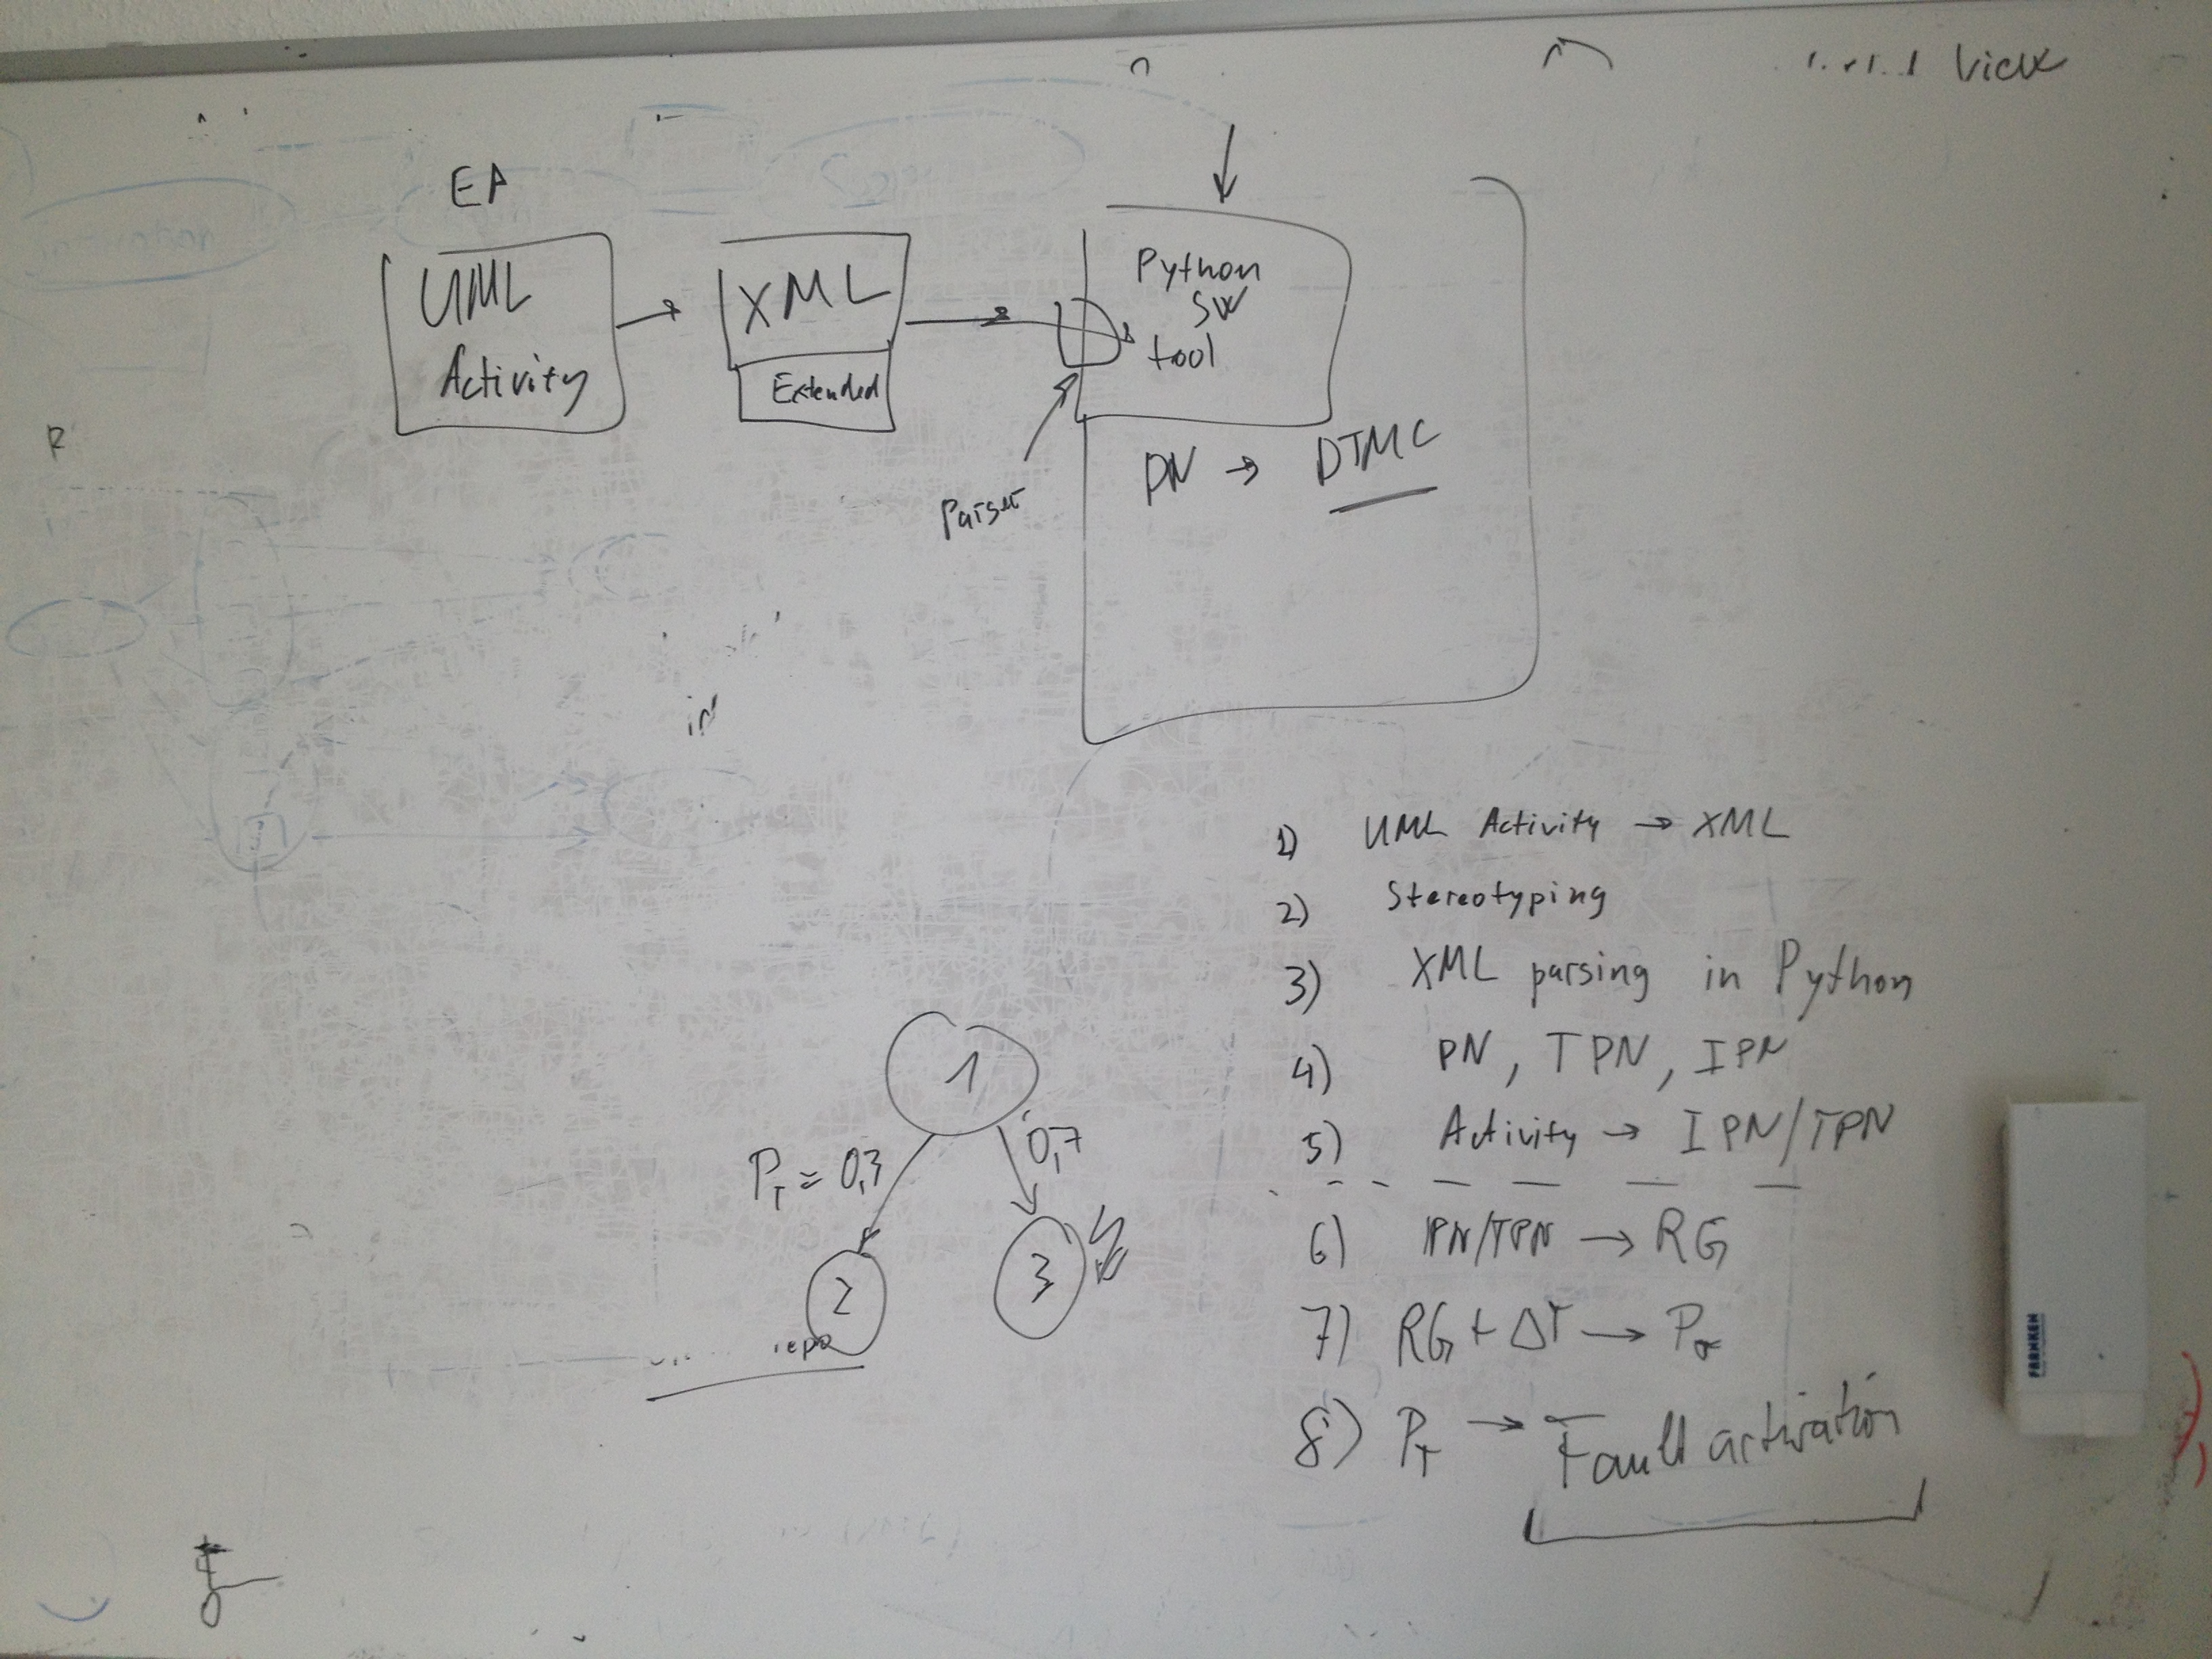 View
EA
UML
Activity
XML
Extended
Python
SW
tool
PN → DTMC
Parser
R
1) UML Activity → XML
2) Stereotyping
3) XML parsing in Python
4) PN, TPN, IPN
5) Activity → IPN/TPN
6) IPN/TPN → RG
7) RG + ΔT →
8) P_T → Fault activation
1
P_T = 0,3
0,7
2
3
FRANKEN